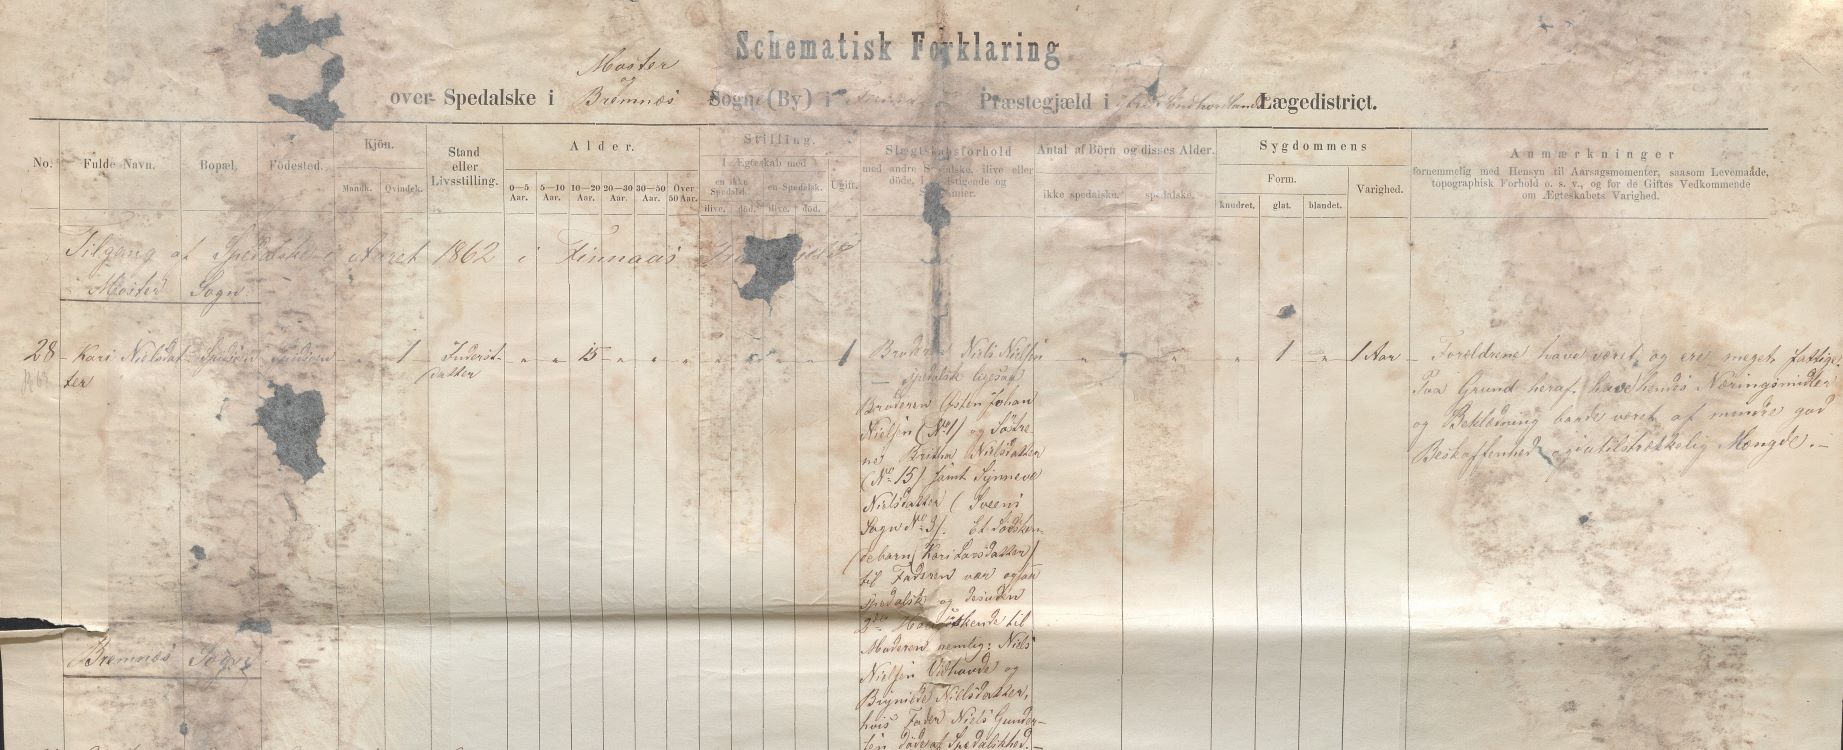 Schematisk Forklaring
over Spedalske i Moster og Bremnæs Sogne (By) i Præstegjæld i Søndhordlands Lægedistrict.
No. Fulde Navn. Bopæl. Födested. Kjön. Stand eller Livsstilling. Alder. Stilling. Slægtskabsforhold Antal af Börn og disses Alder. Sygdommens Anmærkninger
Mandk. Qvindek. 0—5 Aar. 5—10 Aar. 10—20 Aar. 20—30 Aar. 30—50 Aar. Over 50 Aar.
I Ægteskab med Ugift.
en ikke Spedalsk. en Spedalsk.
ilive. död. ilive. död.
med andre Spedalske, ilive eller
döde, i
ikke spedalske. spedalske.
Form. Varighed.
knudret. glat. blandet.
fornemmelig med Hensyn til Aarsagsmomenter, saasom Levemaade,
topographisk Forhold o. s. v., og for de Giftes Vedkommende
om Ægteskabets Varighed.
Tilgang af Spedalske i Aaret 1862 i Finnaas
Moster Sogn
28 Kari Nielsdat- " 1 Inderst- " " 15 " " " " " " " 1
ter datter
Broderen Niels Nielsen
Spedalsk ligesaa
Broderen Østen Johan
Nielsen (No 1) og Söstre
ne, Britha Nielsdatter
(No 15) samt Synneve
Nielsdatter (Sveens
Sogn No 3). Et Södsken-
debarn (Kari Larsdatter)
til Faderen var ogsaa
spedalsk og desuden
2de til
Moderen nemlig: Niels
Nielsen og
Nielsdatter,
hvis Fader Niels Gunder-
sen döde af Spedalskhed. —
" " " 1 " 1 Aar
— Forældrene have været og ere meget fattige.
Paa Grund heraf have hendes Næringsmidler
og Beklædning baade været af mindre god
Beskaffenhed og i utilstrækkelig Mængde. —
Bremnæs Sogn